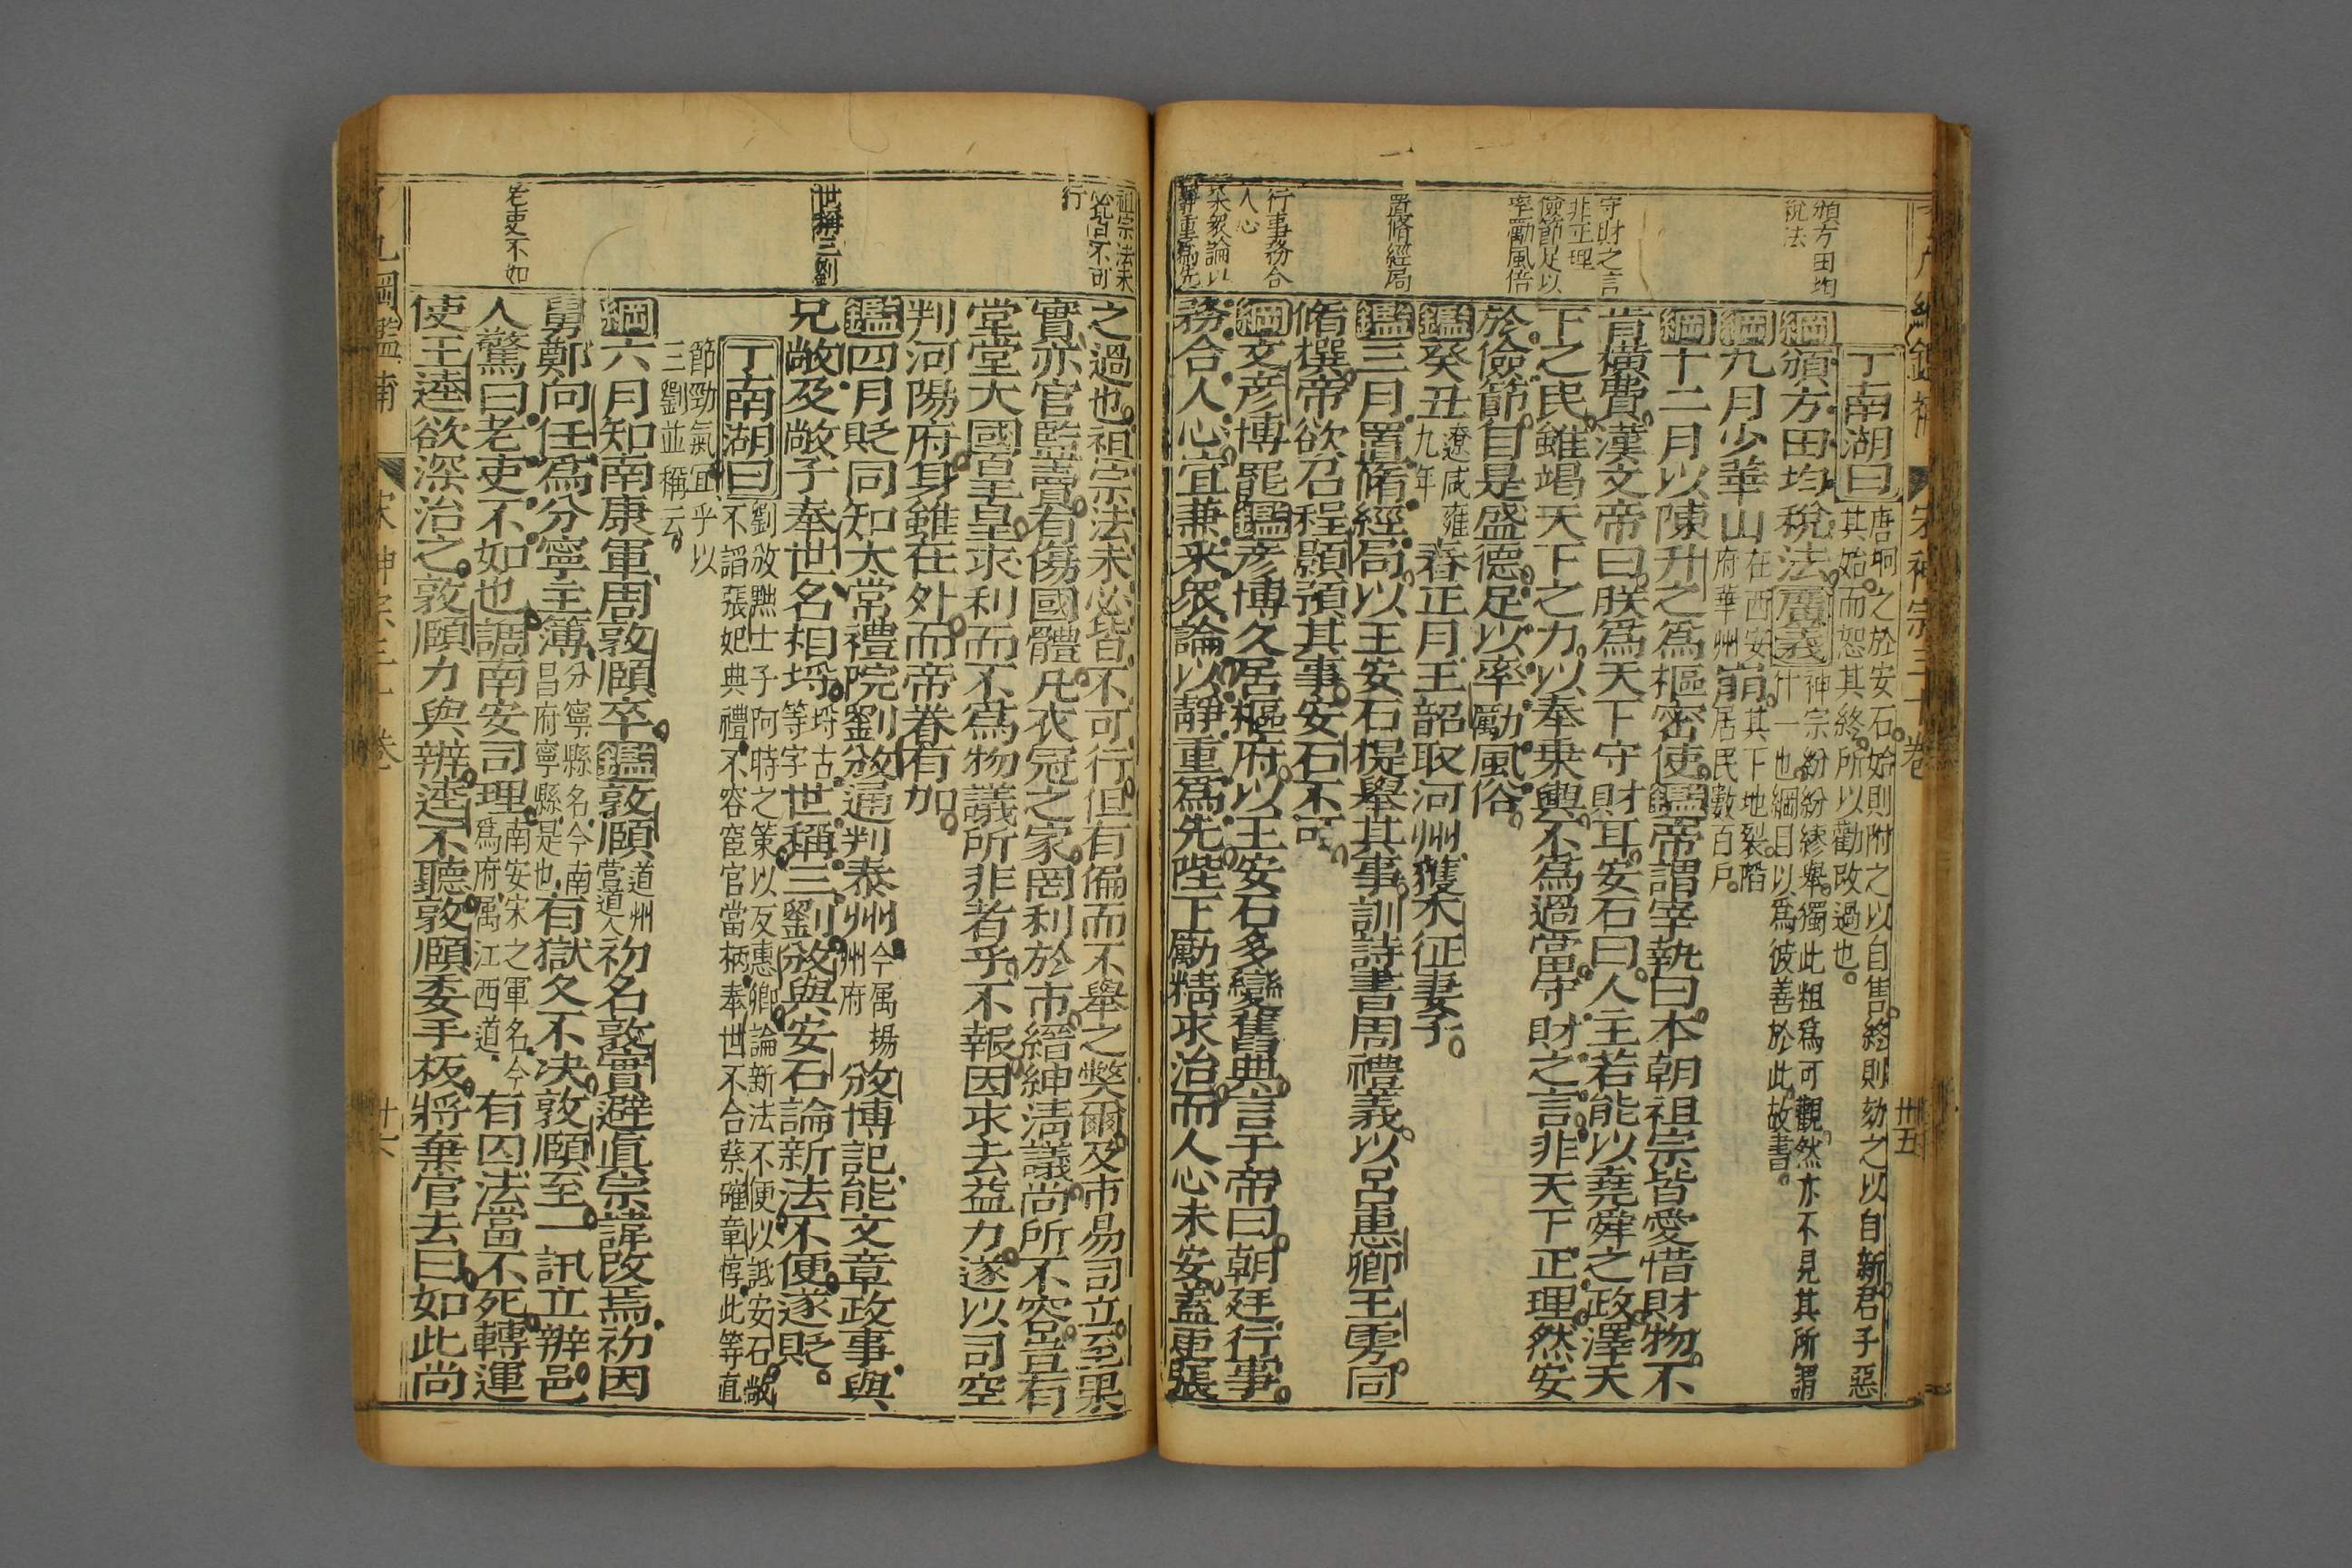 頒方田均
稅法
守財之言
非正理
儉節足以
率勵風俗
置脩經局
行事務合
人心
采衆論以
靜重爲先
丁南湖曰唐坰之於安石始則附之以自售終則劾之以自新君子惡
其始而恕其終所以勸改過也
綱頒方田均稅法廣義神宗紛紛繆舉獨此粗爲可觀然亦不見其所謂
什一也綱目以爲彼善於此故書
綱九月少華山在西安府華州崩其下地裂陷居民數百戶
綱十二月以陳升之爲樞密使鑑帝謂宰執曰本朝祖宗皆愛惜財物不
肯橫費漢文帝曰朕爲天下守財耳安石曰人主若能以堯舜之政澤天
下之民雖竭天下之力以奉乘輿不爲過當守財之言非天下正理然安
於儉節自是盛德足以率勵風俗
鑑癸丑遼咸雍九年春正月王韶取河州獲木征妻子
鑑三月置脩經局以王安石提舉其事訓詩書周禮義以呂惠卿王雱同
脩撰帝欲召程顥預其事安石不可
綱文彦博罷鑑彦博久居樞府以王安石多變舊典言于帝曰朝廷行事
務合人心宜兼采衆論以靜重爲先陛下勵精求治而人心未安蓋更張
宋神宗三十卷
卅五
祖宗法未
必皆不可
行
世稱三劉
老吏不如
之過也祖宗法未必皆不可行但有偏而不舉之獘爾及市易司立至果
實亦官監賣有傷國體凡衣冠之家罔利於市縉紳清議尚所不容豈有
堂堂大國皇皇求利而不爲物議所非者乎不報因求去益力遂以司空
判河陽府身雖在外而帝眷有加
鑑四月貶同知太常禮院劉攽通判泰州今属揚州府攽博記能文章政事與
兄敞及敞子奉世名相埒埒古等字世稱三劉攽與安石論新法不便遂貶
丁南湖曰劉攽黜士子阿時之策以反惠卿論新法不便以詆安石敞
不謟張妃典禮不容宦官當柄奉世不合蔡確章惇此等直
節勁氣宜乎以
三劉並稱云
綱六月知南康軍周敦頤卒鑑敦頤道州營道人初名敦實避眞宗諱改焉初因
舅鄭向任爲分寧主簿分寧縣名今南昌府寧縣是也有獄久不决敦頤至一訊立辨邑
人驚曰老吏不如也調南安司理南安宋之軍名今爲府属江西道有囚法當不死轉運
使王逵欲深治之敦頤力與辨逵不聽敦頤委手板將棄官去曰如此尚